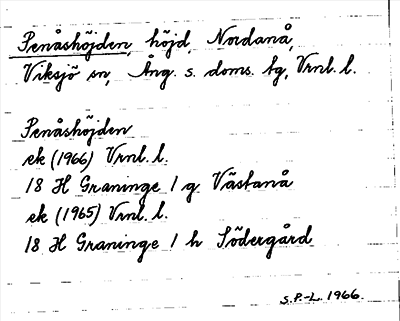 Penåshöjden, höjd, Nordanå,
Viksjö sn, Ång. s. doms. tg, Vrnl. l.
Penåshöjden
ek (1966) Vrnl. l.
18 H Graninge 1 g Västanå
ek (1965) Vrnl. l.
18 H Graninge 1 h Södergård
S.P.-L. 1966.